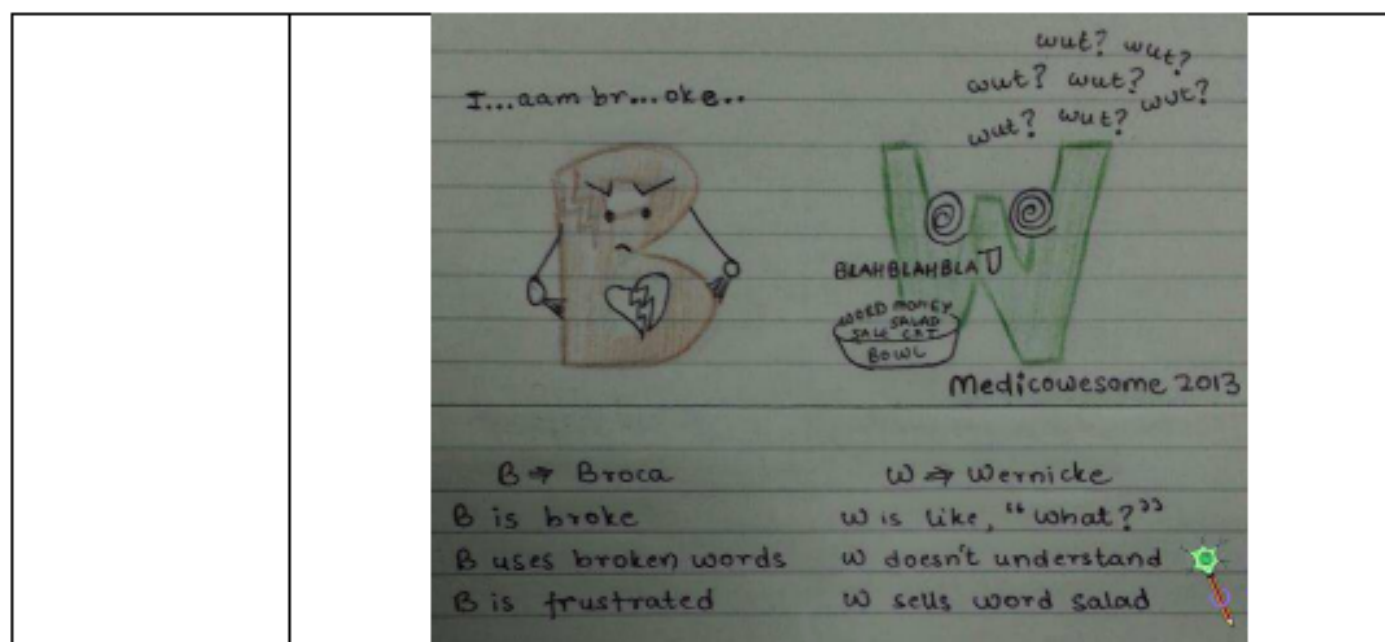 wut? wut?
wut? wut? wut?
wut? wut?
I...aam br...oke..
BLAHBLAHBLA
WORD MONEY
SALAD
SALE CAT
BOWL
Medicowesome 2013
B → Broca
B is broke
B uses broken words
B is frustrated
W → Wernicke
W is like, "what?"
W doesn't understand
W sells word salad